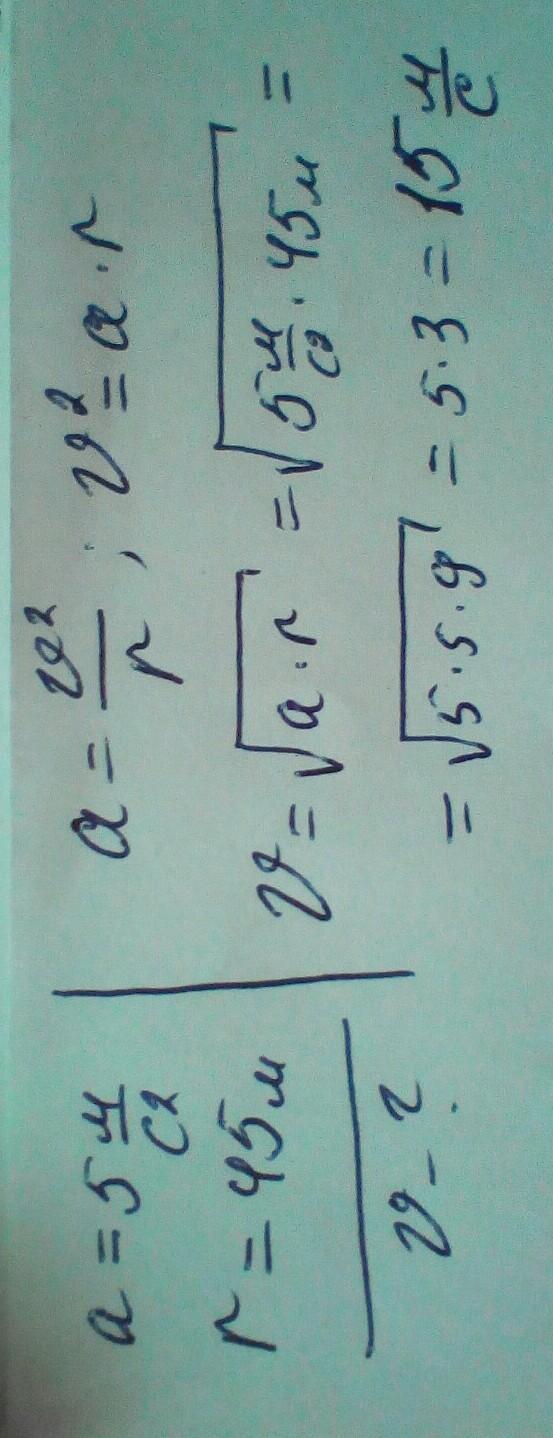 a = 5 м/с²
r = 45 м
υ - ?
a = υ²/r ; υ² = a · r
υ = √(a · r) = √(5 м/с² · 45 м) =
= √(5 · 5 · 9) = 5 · 3 = 15 м/с